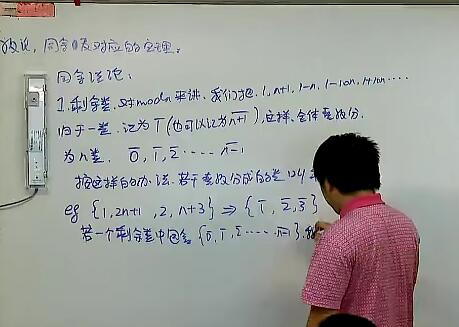 同余理论:
1.剩余类.对modn来讲.我们把.1,n+1,1-n,1-10n,1+10n····
归于一类.记为1̅(也可以记为n̅+̅1̅),这样.全体整数分
为n类. 0̅,1̅,2̅·····n̅-̅1̅
按这样的办法.若干整数分成的类
eg {1,2n+1,2,n+3}⇒{1̅,2̅,3̅}
若一个剩余类中 {0̅,1̅,2̅·····n̅-̅1̅}.